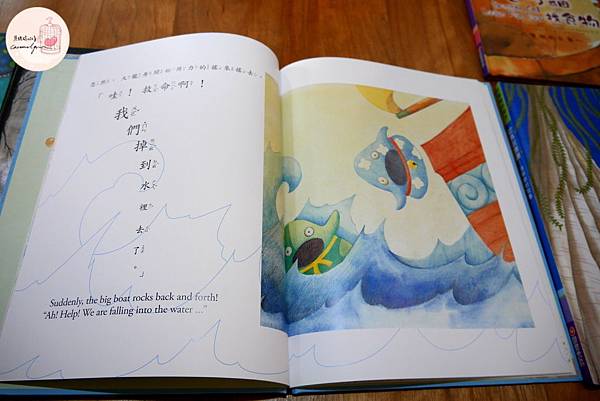 忽然，大船開始用力的搖來搖去，
「哇！救命啊！
我
們
掉
到
水
裡
去
了
。」
Suddenly, the big boat rocks back and forth!
"Ah! Help! We are falling into the water ..."
找食物